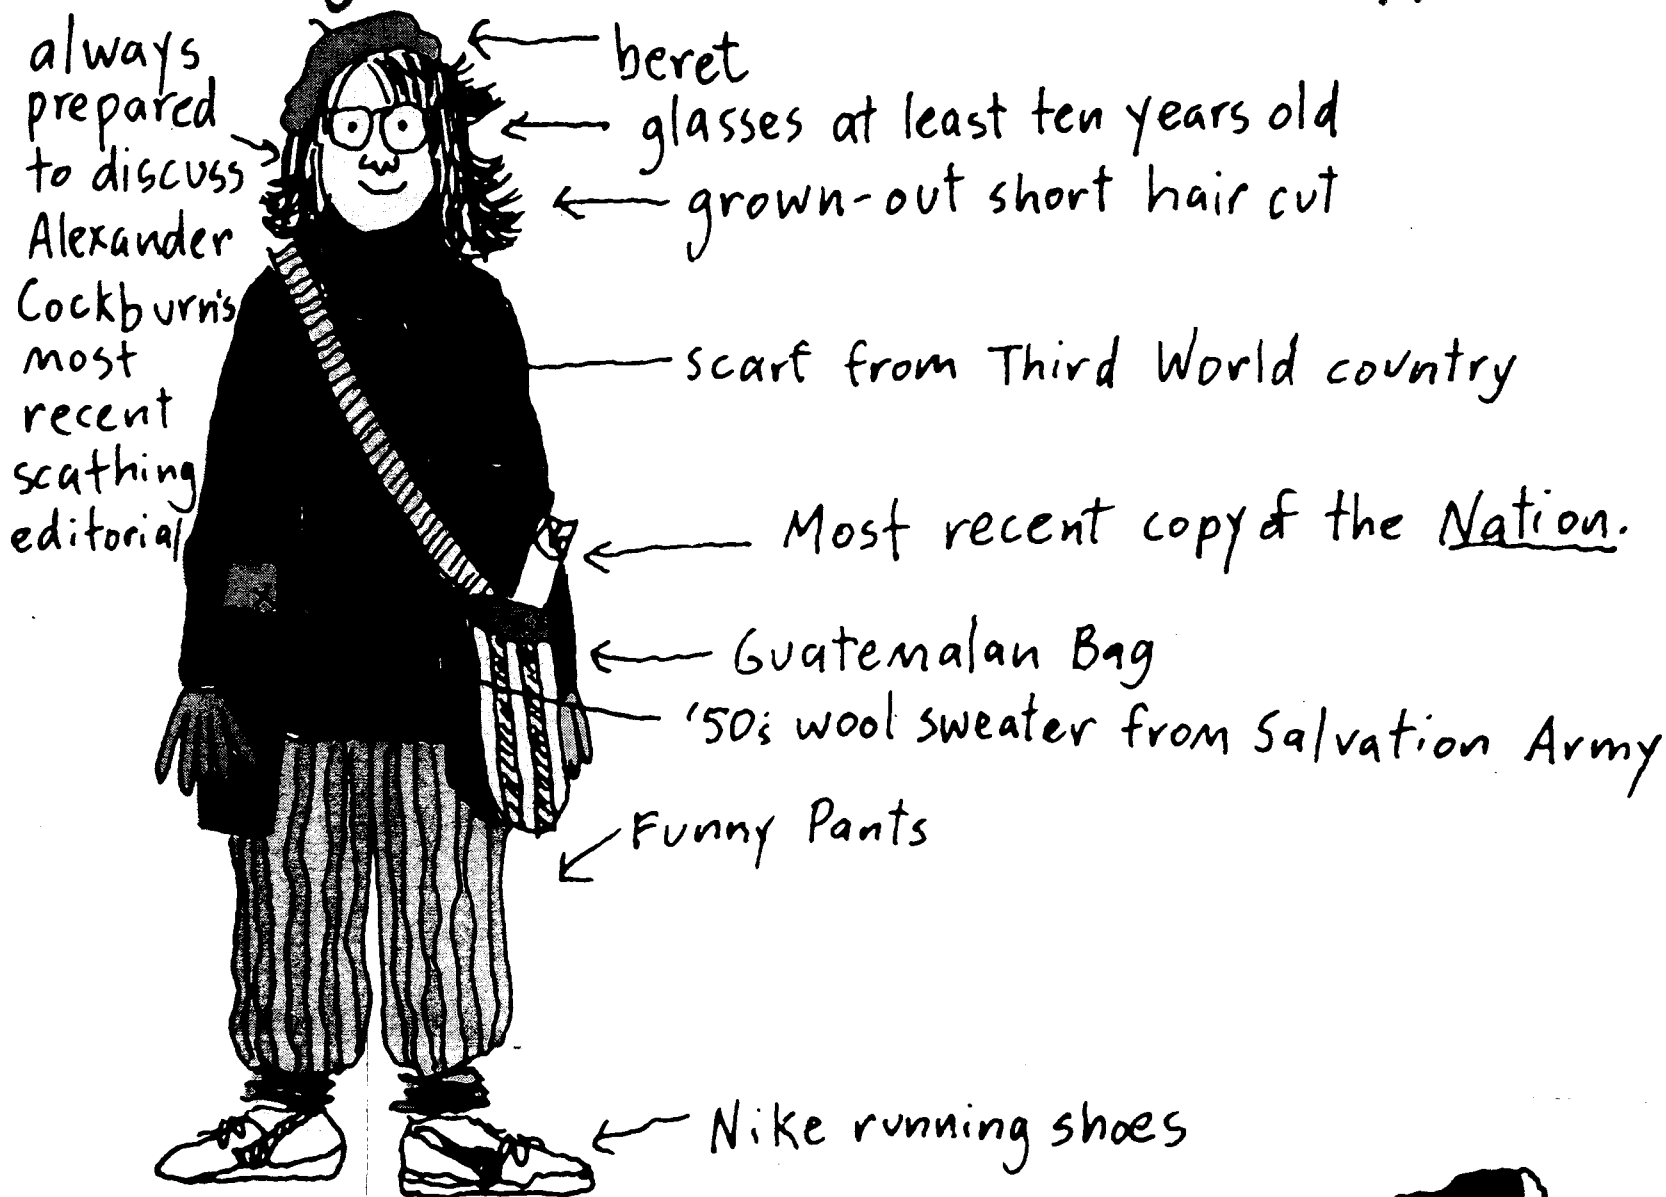 always
prepared
to discuss
Alexander
Cockburn's
most
recent
scathing
editorial
beret
glasses at least ten years old
grown-out short hair cut
scarf from Third World country
Most recent copy of the Nation.
Guatemalan Bag
'50s wool sweater from Salvation Army
Funny Pants
Nike running shoes